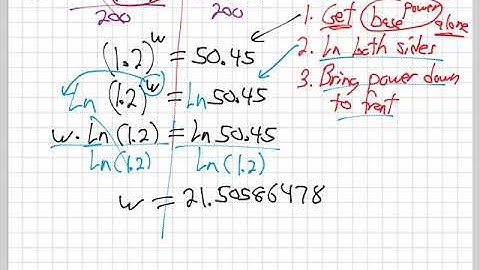 200 200
(1.2)^w = 50.45
Ln (1.2)^w = Ln 50.45
w · Ln (1.2) = Ln 50.45
Ln (1.2) Ln (1.2)
w = 21.50586478
1. Get base^power alone
2. Ln both sides
3. Bring power down
to front